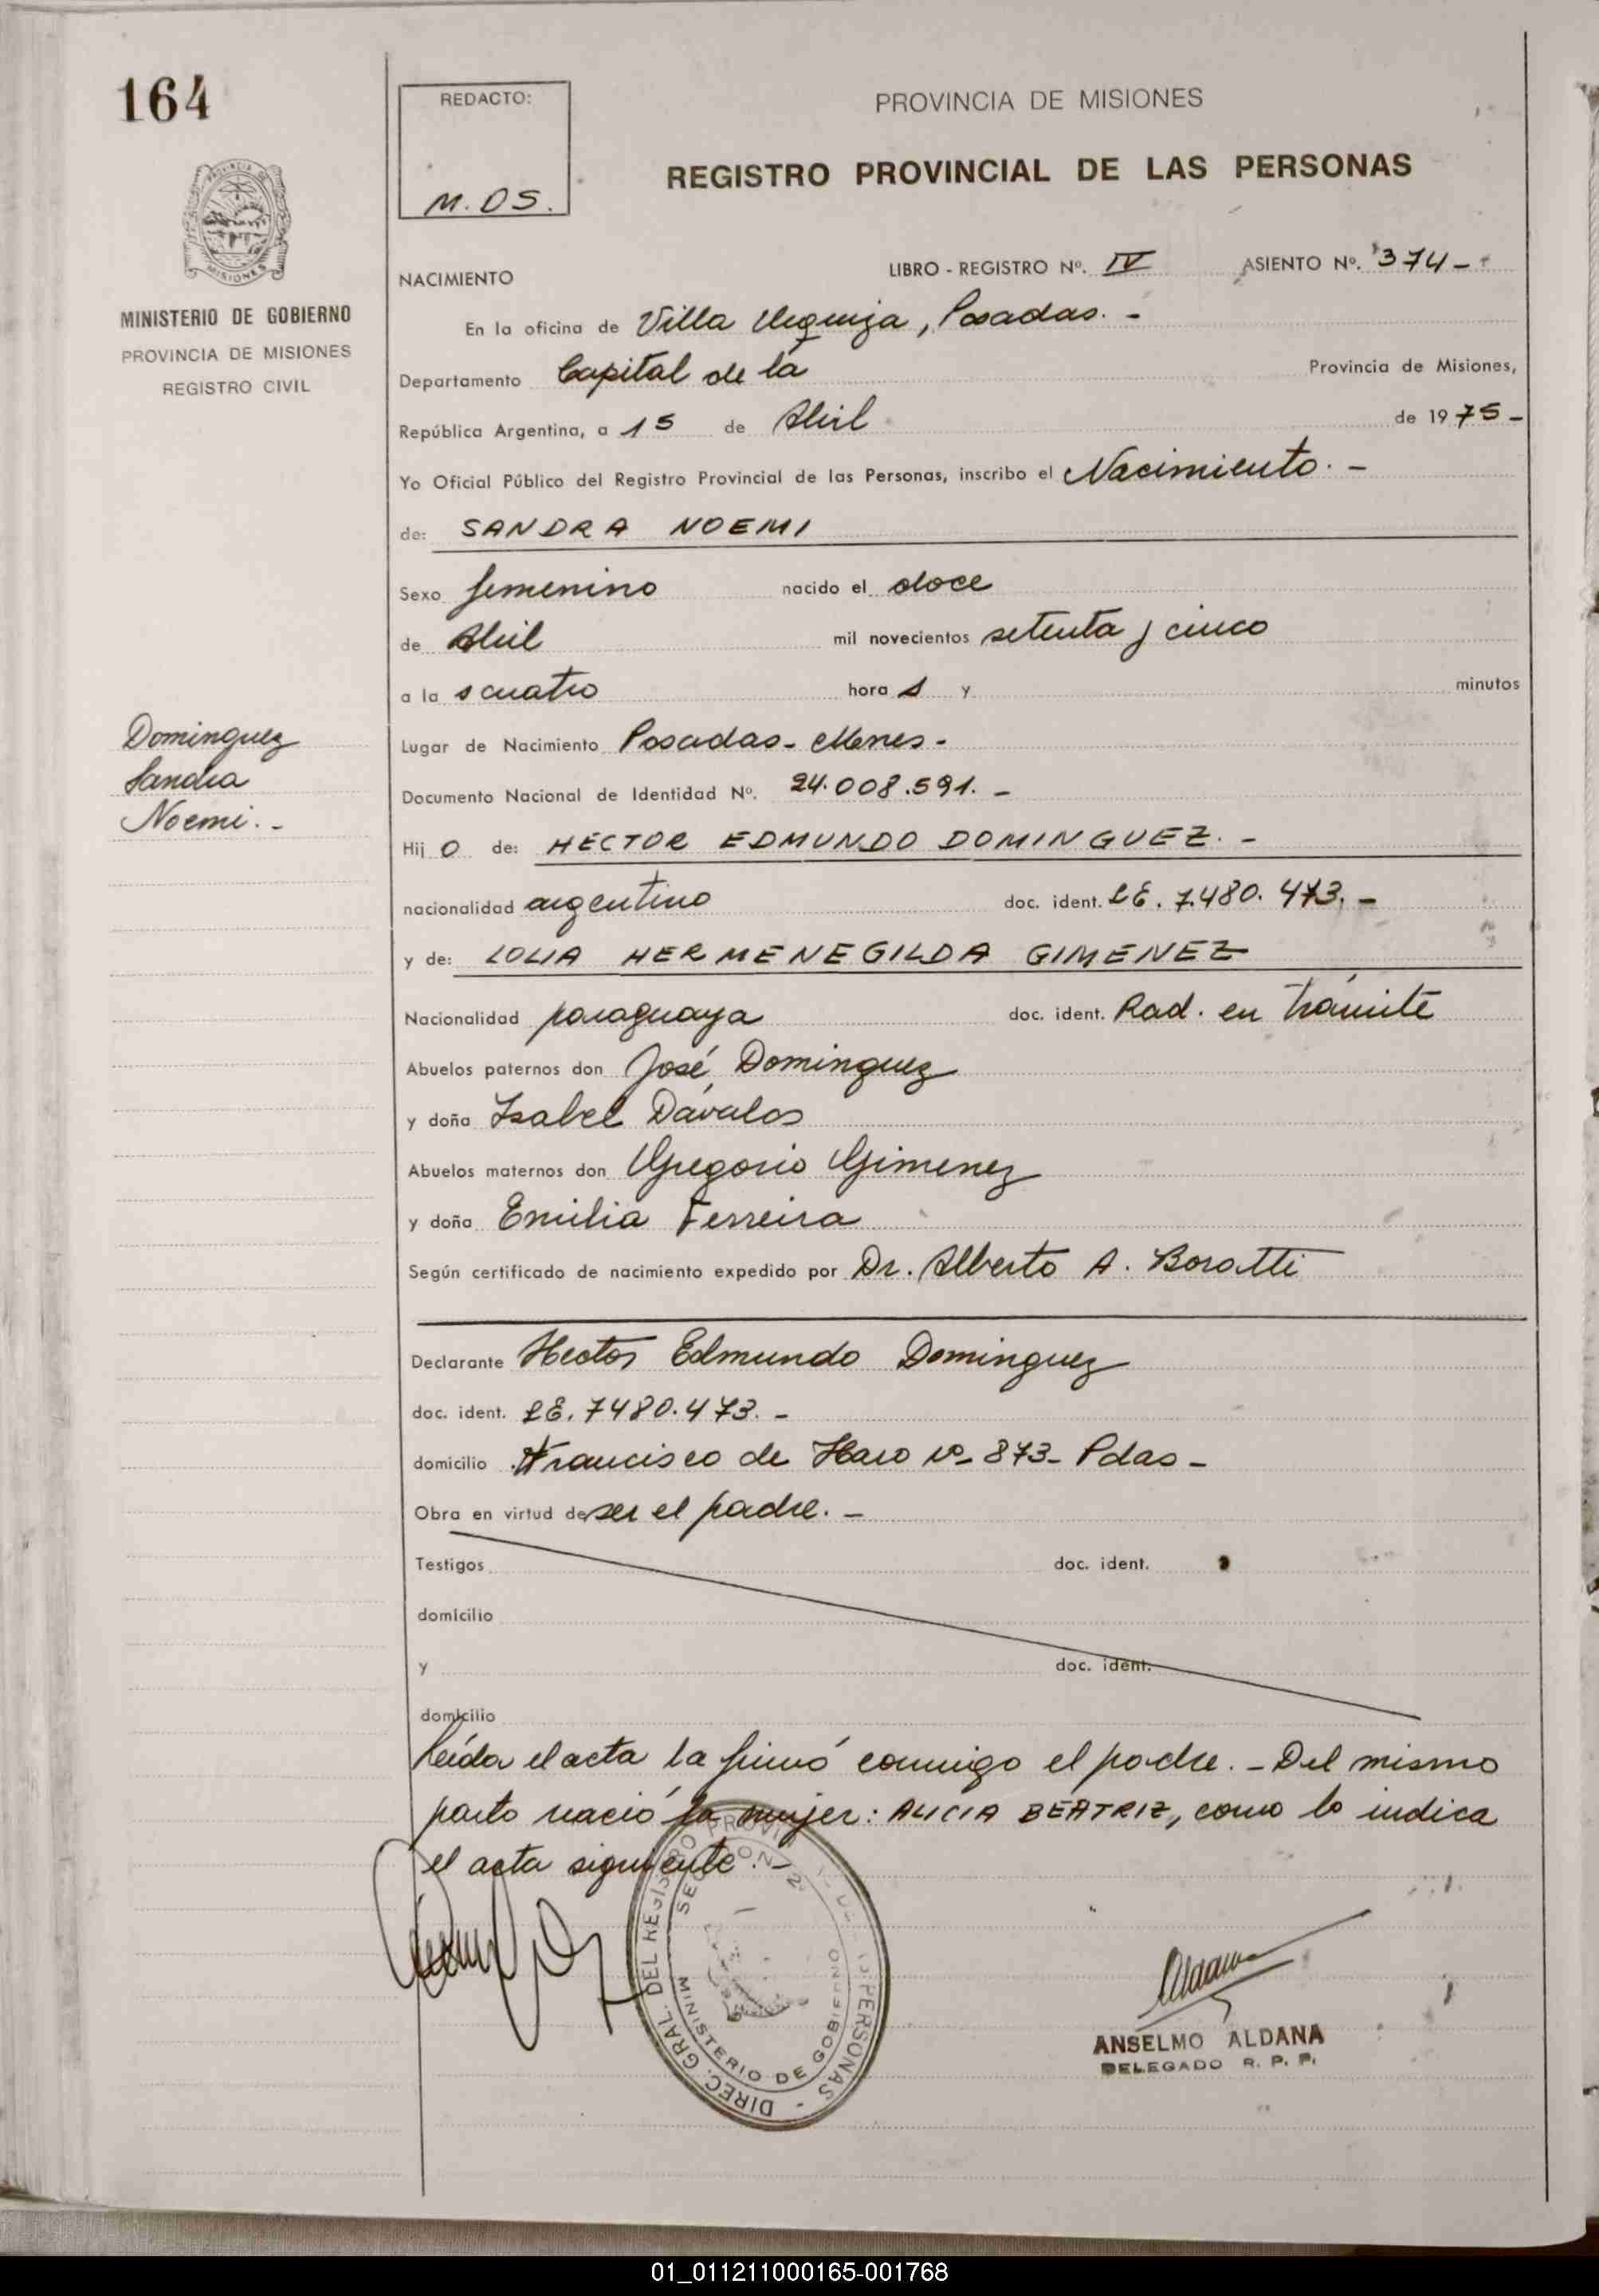 164
REDACTO:
M. DS.
PROVINCIA DE MISIONES
REGISTRO PROVINCIAL DE LAS PERSONAS
PROVINCIA DE
MISIONES
MINISTERIO DE GOBIERNO
PROVINCIA DE MISIONES
REGISTRO CIVIL
NACIMIENTO
LIBRO - REGISTRO Nº. IV ASIENTO Nº. 374 -
En la oficina de Villa Urquiza, Posadas. -
Departamento Capital de la Provincia de Misiones,
República Argentina, a 15 de Abril de 1975 -
Yo Oficial Público del Registro Provincial de las Personas, inscribo el Nacimiento. -
de: SANDRA NOEMI
Sexo femenino nacido el doce
de Abril mil novecientos setenta y cinco
a la s cuatro hora s y minutos
Dominguez
Sandra
Noemi. -
Lugar de Nacimiento Posadas - Mnes -
Documento Nacional de Identidad Nº. 24.008.591. -
Hij o de: HECTOR EDMUNDO DOMINGUEZ. -
nacionalidad argentino doc. ident. LE. 7.480.473. -
y de: LOLIA HERMENEGILDA GIMENEZ
Nacionalidad paraguaya doc. ident. Rad. en trámite
Abuelos paternos don José Dominguez
y doña Isabel Dávalos
Abuelos maternos don Gregorio Gimenez
y doña Emilia Ferreira
Según certificado de nacimiento expedido por Dr. Alberto A. Boratti
Declarante Hector Edmundo Dominguez
doc. ident. LE. 7480.473. -
domicilio Francisco de Haro nº 873 - Pdas -
Obra en virtud de ser el padre. -
Testigos doc. ident.
domicilio
y doc. ident.
domicilio
Leída el acta la firmó conmigo el padre. - Del mismo
parto nació la mujer: ALICIA BEATRIZ, como lo indica
el acta siguiente. -
DIREC. GRAL. DEL REGISTRO PROVINCIAL DE LAS PERSONAS -
MINISTERIO DE GOBIERNO
ANSELMO ALDANA
DELEGADO R. P. P.
01_011211000165-001768